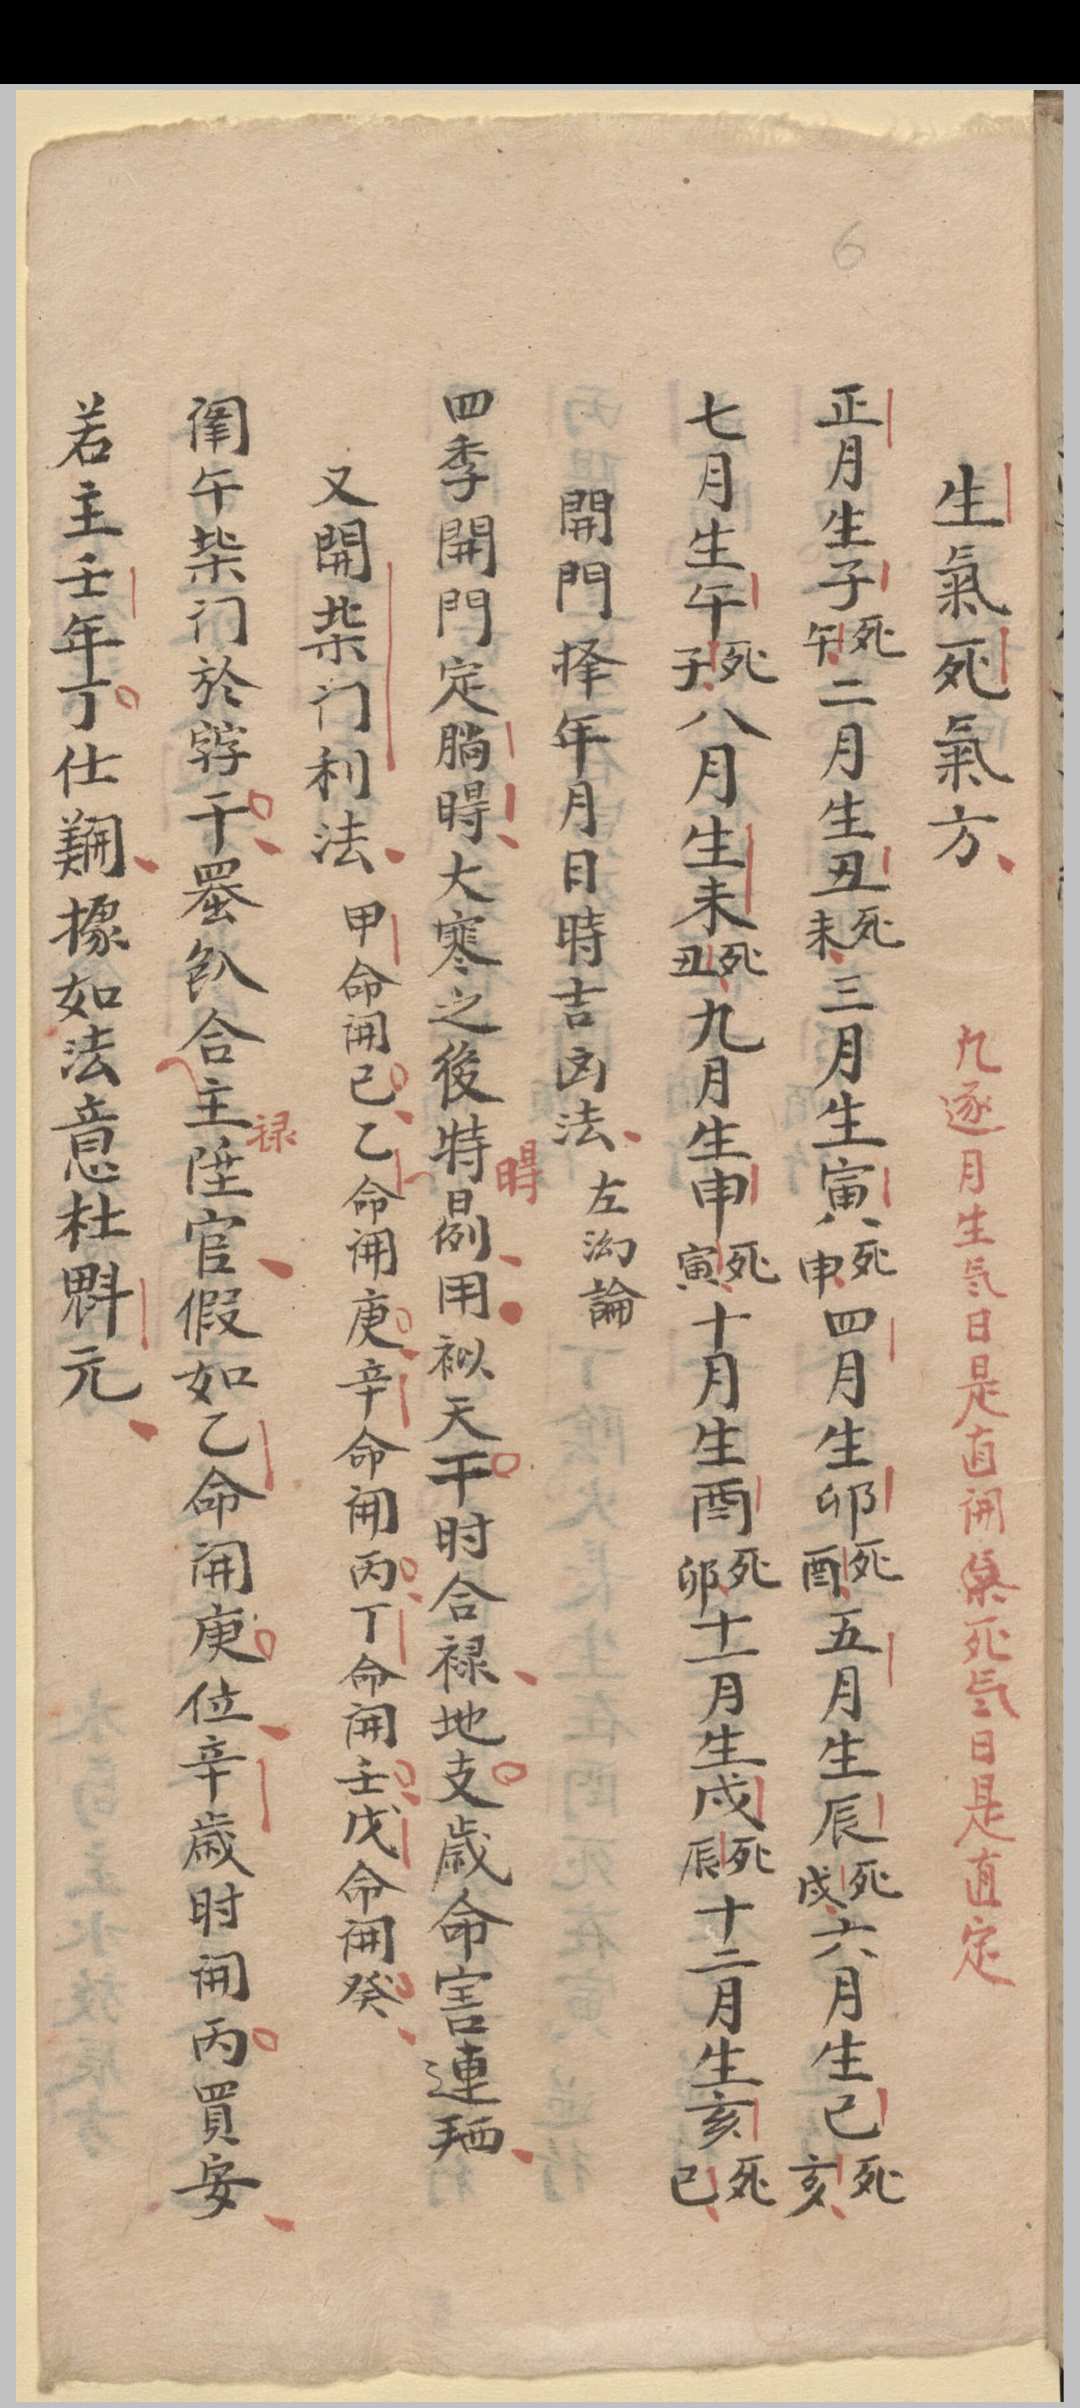 生氣死氣方
凡逐月生気日是直開
死気日是直定
正月生子死午二月生丑死未三月生寅死申四月生卯死酉五月生辰死戌六月生巳死亥
七月生午死子八月生未死丑九月生申死寅十月生酉死卯十一月生戌死辰十二月生亥死巳
開門择年月日時吉凶法
左㳓論
四季開門定𦛨𣇞大寒之後特𣇞用
天干时合禄地支歳命害連
又開柴门利法
甲命開己乙命開庚辛命開丙丁命開壬戊命開癸
午柴门於
干合主陞官假如乙命開庚位辛歳时開丙買安
禄
若主壬年丁仕據如法意杜魁元
6